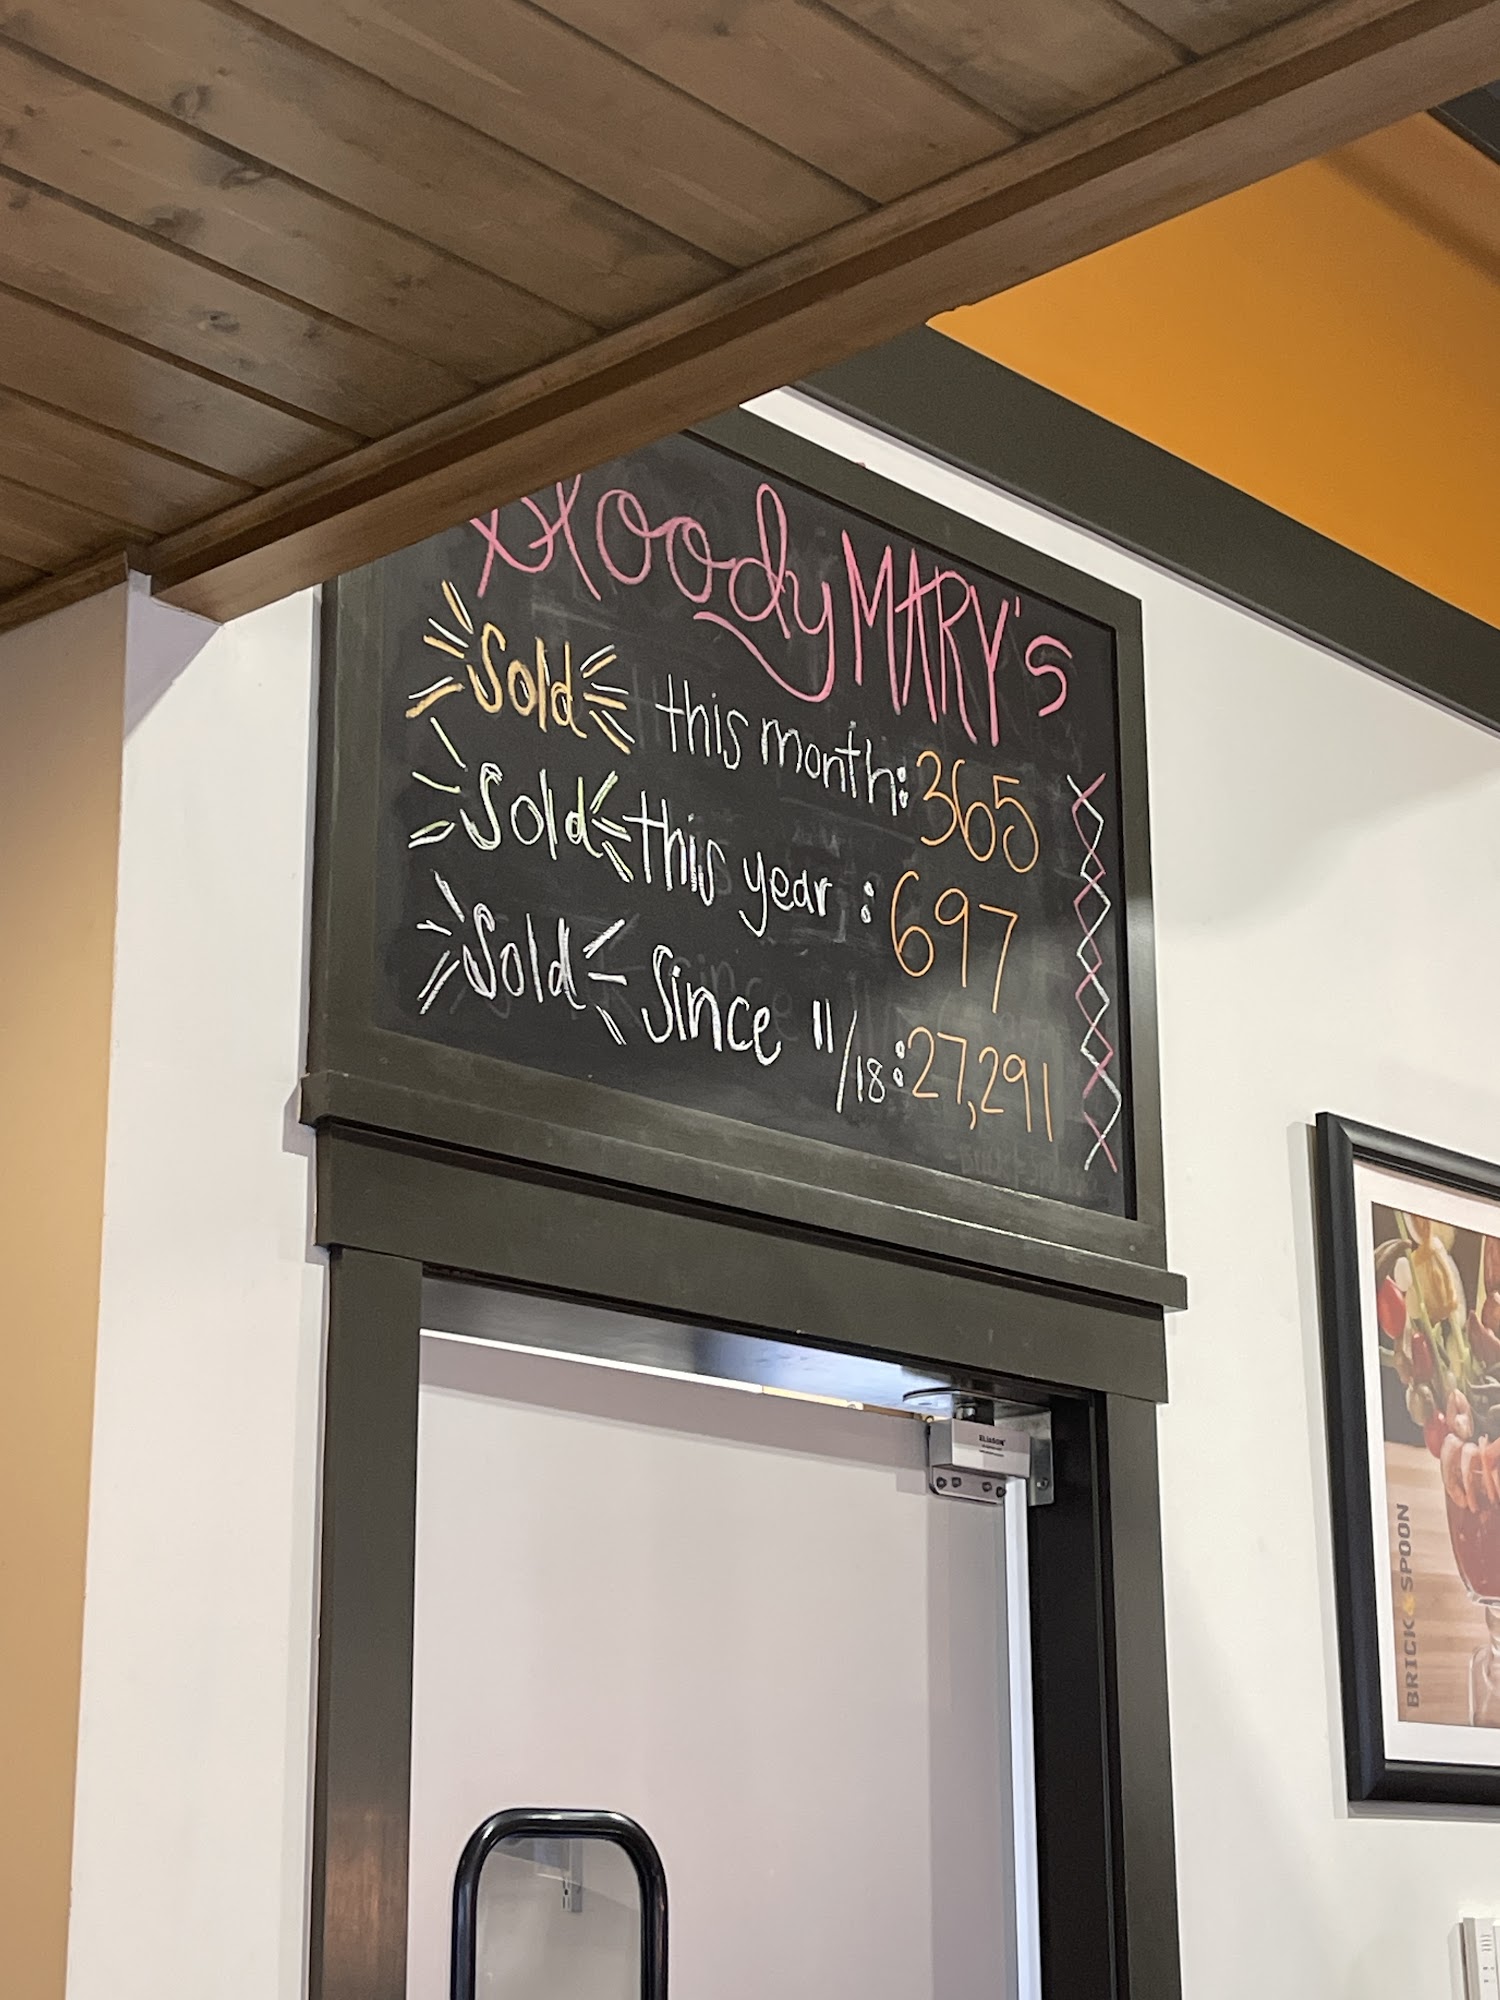 Bloody MARY's
Sold this month: 365
Sold this year: 697
Sold Since 11/18: 27,291
ELIASON
BRICK & SPOON